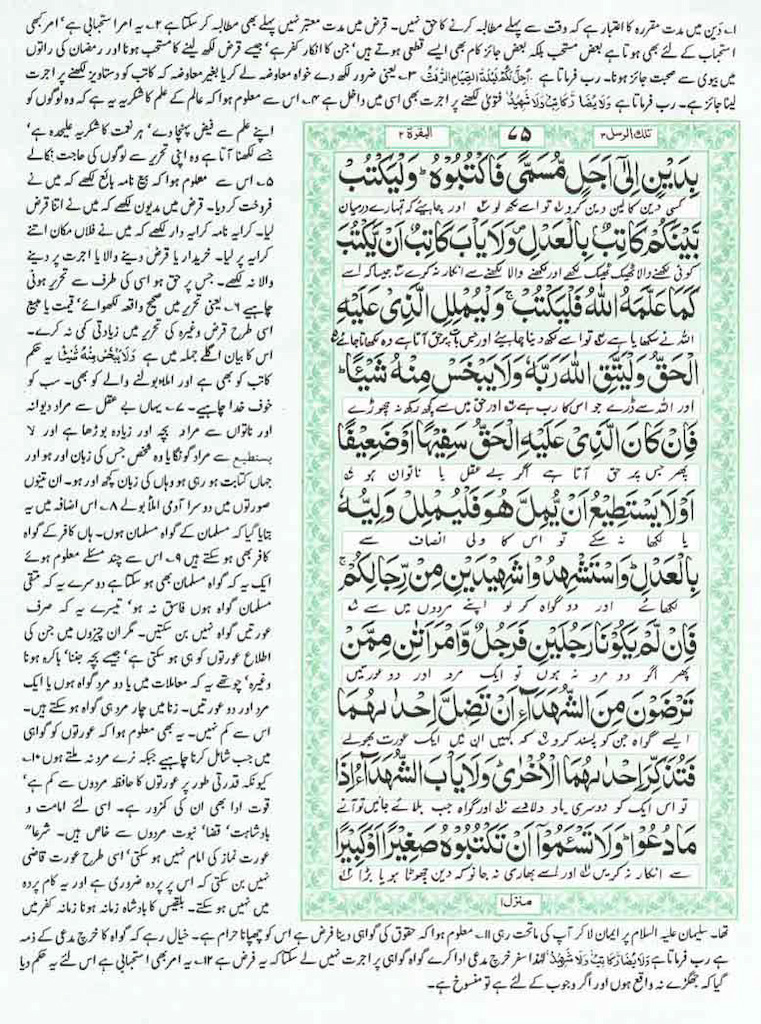 ۱؎ دَین میں مدت مقررہ کا اعتبار ہے کہ وقت سے پہلے مطالبہ کرنے کا حق نہیں۔ قرض میں مدت معتبر نہیں پہلے بھی مطالبہ کر سکتا ہے ۲؎ یہ امر استحبابی ہے' امر کبھی
استحباب کے لئے بھی ہوتا ہے بعض مستحب بلکہ بعض جائز کام بھی ایسے قطعی ہوتے ہیں' جن کا انکار کفر ہے' جیسے قرض لکھ لینے کا مستحب ہونا اور رمضان کی راتوں
میں بیوی سے صحبت جائز ہونا۔ رب فرماتا ہے اُحِلَّ لَكُمْ لَيْلَةَ الصِّيَامِ الرَّفَثُ ۳؎ یعنی ضرور لکھ دے خواہ معاوضہ لے کر یا بغیر معاوضہ کہ کاتب کو دستاویز لکھنے پر اجرت
لینا جائز ہے۔ رب فرماتا ہے وَلَا يُضَآرَّ كَاتِبٌ وَّلَا شَهِيْدٌ فتویٰ لکھنے پر اجرت بھی اسی میں داخل ہے ۴؎ اس سے معلوم ہوا کہ عالم کے علم کا شکریہ یہ ہے کہ وہ لوگوں کو
اپنے علم سے فیض پہنچا دے' ہر نعمت کا شکریہ علیحدہ ہے'
جسے لکھنا آتا ہے وہ اپنی تحریر سے لوگوں کی حاجت نکالے
۵؎ اس سے معلوم ہوا کہ بیع نامہ بائع لکھے کہ میں نے
فروخت کر دیا۔ قرض میں مدیون لکھے کہ میں نے اتنا قرض
لیا۔ کرایہ نامہ کرایہ دار لکھے کہ میں نے فلاں مکان اتنے
کرایہ پر لیا۔ خریدار یا قرض دینے والا یا اجرت پر دینے
والا نہ لکھے۔ جس پر حق ہو اسی کی طرف سے تحریر ہونی
چاہیے ۶؎ یعنی تحریر میں صحیح واقعہ لکھوائے' قیمت یا مبیع
اسی طرح قرض وغیرہ کی تحریر میں زیادتی کمی نہ کرے۔
اس کا بیان اگلے جملہ میں ہے وَلَا يَبْخَسْ مِنْهُ شَيْئًا یہ حکم
کاتب کو بھی ہے اور املاء بولنے والے کو بھی۔ سب کو
خوف خدا چاہیے۔ ۷؎ یہاں بے عقل سے مراد دیوانہ
اور ناتواں سے مراد بچہ اور زیادہ بوڑھا ہے اور لا
یستطیع سے مراد گونگا یا وہ شخص جس کی زبان اور ہو اور
جہاں کتابت ہو رہی ہو وہاں کی زبان کچھ اور ہو۔ ان تینوں
صورتوں میں دوسرا آدمی املا بولے ۸؎ اس اضافہ میں یہ
بتایا گیا کہ مسلمان کے گواہ مسلمان ہوں۔ ہاں کافر کے گواہ
کافر بھی ہو سکتے ہیں ۹؎ اس سے چند مسئلے معلوم ہوئے
ایک یہ کہ گواہ مسلمان بھی ہو سکتا ہے دوسرے یہ کہ متقی
مسلمان گواہ ہوں فاسق نہ ہو' تیسرے یہ کہ صرف
عورتیں گواہ نہیں بن سکتیں۔ مگر ان چیزوں میں جن کی
اطلاع عورتوں کو ہی ہو سکتی ہے' جیسے بچہ جننا' باکرہ ہونا
وغیرہ' چوتھے یہ کہ معاملات میں یا دو مرد گواہ ہوں یا ایک
مرد اور دو عورتیں۔ زنا میں چار مرد ہی گواہ ہو سکتے ہیں۔
اس سے کم نہیں۔ یہ بھی معلوم ہوا کہ عورتوں کو گواہی
میں جب شامل کرنا چاہیے جبکہ نرے مرد نہ ملتے ہوں ۱۰؎
کیونکہ قدرتی طور پر عورتوں کا حافظہ مردوں سے کم ہے'
قوت ادا بھی ان کی کمزور ہے۔ اسی لئے امامت و
بادشاہت' قضا' نبوت مردوں سے خاص ہیں۔ شرعا"
عورت نماز کی امام نہیں ہو سکتی' اسی طرح عورت قاضی
نہیں بن سکتی کہ اس پر پردہ ضروری ہے اور یہ کام پردہ
میں نہیں ہو سکتے۔ بلقیس کا بادشاہ زمانہ ہونا زمانہ کفر میں
تلك الرسل ۳
۷۵
البقرة ۲
بِدَيْنٍ اِلٰۤى اَجَلٍ مُّسَمًّى فَاكْتُبُوْهُ ؕ وَلْيَكْتُبْ
کسی دین کا لین دین کرو تو اسے لکھ لو اور چاہیئے کہ تمہارے درمیان
بَّيْنَكُمْ كَاتِبٌۢ بِالْعَدْلِ ۪ وَلَا يَاْبَ كَاتِبٌ اَنْ يَّكْتُبَ
کوئی لکھنے والا ٹھیک ٹھیک لکھے اور لکھنے والا لکھنے سے انکار نہ کرے جیسا کہ اسے
كَمَا عَلَّمَهُ اللّٰهُ فَلْيَكْتُبْ ۚ وَلْيُمْلِلِ الَّذِيْ عَلَيْهِ
اللہ نے سکھایا ہے تو اسے لکھ دینا چاہیئے اور جس پر حق آتا ہے وہ لکھاتا جائے
الْحَقُّ وَلْيَتَّقِ اللّٰهَ رَبَّهٗ وَلَا يَبْخَسْ مِنْهُ شَيْـًٔا ؕ
اور اللہ سے ڈرے جو اس کا رب ہے اور حق میں سے کچھ رکھ نہ چھوڑے
فَاِنْ كَانَ الَّذِيْ عَلَيْهِ الْحَقُّ سَفِيْهًا اَوْ ضَعِيْفًا
پھر جس پر حق آتا ہے اگر بے عقل یا ناتوان ہو
اَوْ لَا يَسْتَطِيْعُ اَنْ يُّمِلَّ هُوَ فَلْيُمْلِلْ وَلِيُّهٗ
یا لکھا نہ سکے تو اس کا ولی انصاف سے
بِالْعَدْلِ ؕ وَاسْتَشْهِدُوْا شَهِيْدَيْنِ مِنْ رِّجَالِكُمْ ۚ
لکھائے اور دو گواہ کر لو اپنے مردوں میں سے
فَاِنْ لَّمْ يَكُوْنَا رَجُلَيْنِ فَرَجُلٌ وَّامْرَاَتٰنِ مِمَّنْ
پھر اگر دو مرد نہ ہوں تو ایک مرد اور دو عورتیں
تَرْضَوْنَ مِنَ الشُّهَدَآءِ اَنْ تَضِلَّ اِحْدٰىهُمَا
ایسے گواہ جن کو پسند کرو کہ کہیں ان میں ایک عورت بھولے
فَتُذَكِّرَ اِحْدٰىهُمَا الْاُخْرٰى ؕ وَلَا يَاْبَ الشُّهَدَآءُ اِذَا
تو اس ایک کو دوسری یاد دلا دے اور گواہ جب بلائے جائیں تو آنے
مَا دُعُوْا ؕ وَلَا تَسْـَٔمُوْۤا اَنْ تَكْتُبُوْهُ صَغِيْرًا اَوْ كَبِيْرًا
سے انکار نہ کریں اور اسے بھاری نہ جانو کہ دین چھوٹا ہو یا بڑا
منزل ۱
تھا۔ سلیمان علیہ السلام پر ایمان لا کر آپ کی ماتحت رہی ۱۱؎ معلوم ہوا کہ حقوق کی گواہی دینا فرض ہے اس کو چھپانا حرام ہے۔ خیال رہے کہ گواہ کا خرچ مدعی کے ذمہ
ہے رب فرماتا ہے وَلَا يُضَآرَّ كَاتِبٌ وَّلَا شَهِيْدٌ لہٰذا سفر خرچ مدعی ادا کرے گواہ گواہی پر اجرت نہیں لے سکتا کہ یہ فرض ہے ۱۲؎ یہ امر بھی استحبابی ہے اس لئے یہ حکم دیا
گیا کہ جھگڑے نہ واقع ہوں اور اگر وجوب کے لئے ہے تو منسوخ ہے۔